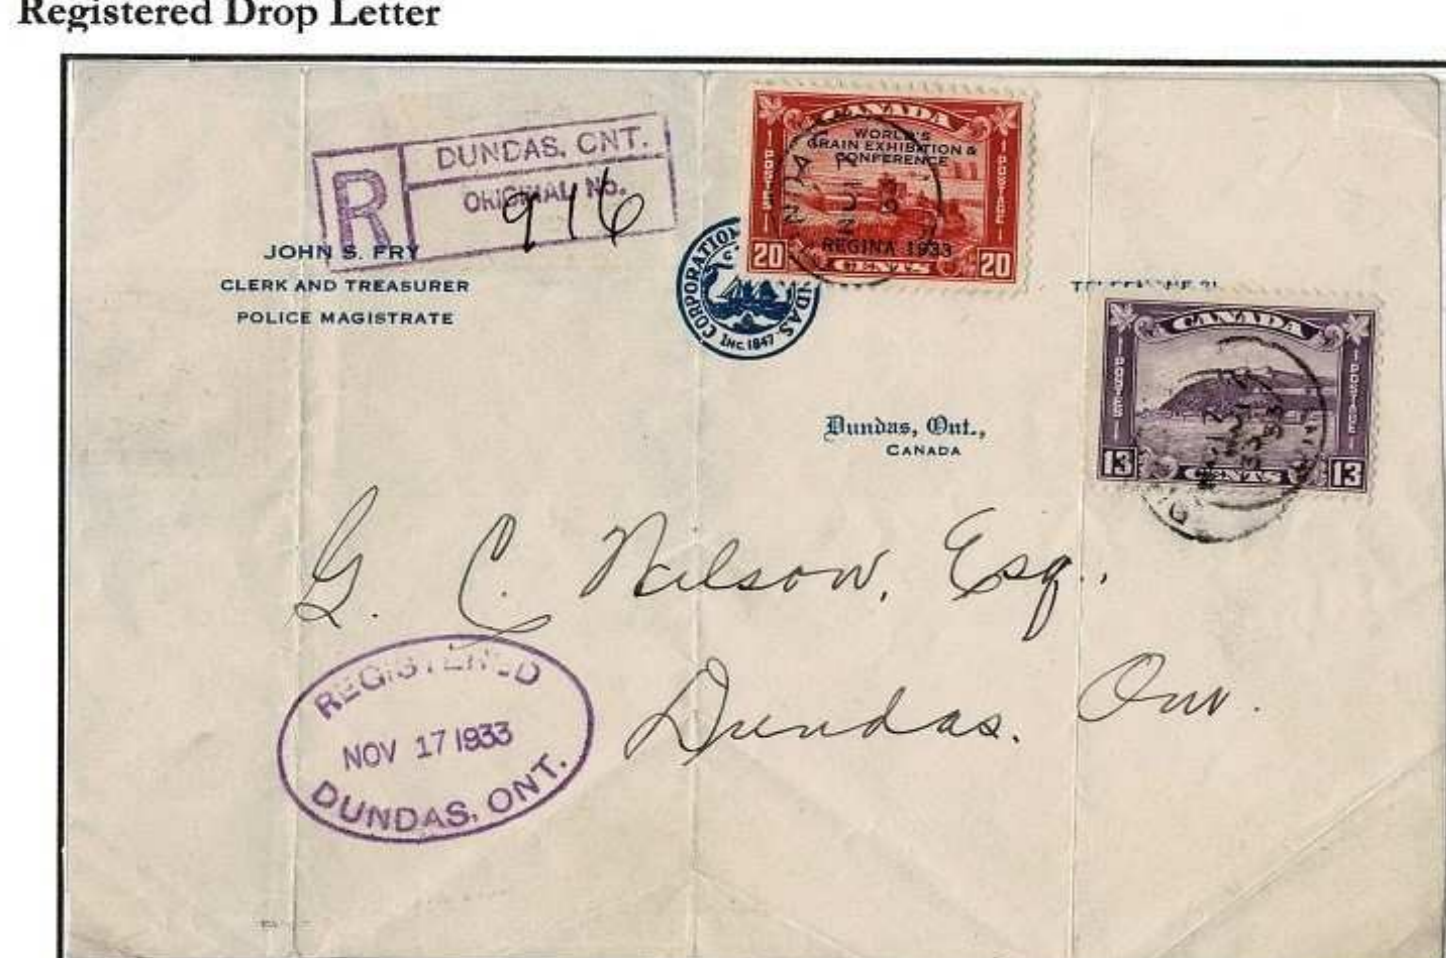 Registered Drop Letter
R
DUNDAS, ONT.
ORIGINAL No.
916
JOHN S. FRY
CLERK AND TREASURER
POLICE MAGISTRATE
CORPORATION
NDAS
INC. 1847
CANADA
WORLD'S
GRAIN EXHIBITION &
CONFERENCE
POSTES
POSTAGE
REGINA 1933
20 CENTS 20
CANADA
POSTES
POSTAGE
13 CENTS 13
Dundas, Ont.,
CANADA
G. C. Nilson, Esq.,
Dundas. Ont.
REGISTERED
NOV 17 1933
DUNDAS, ONT.